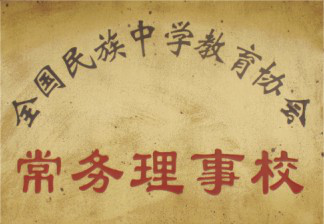 全国民族中学教育协会
常务理事校